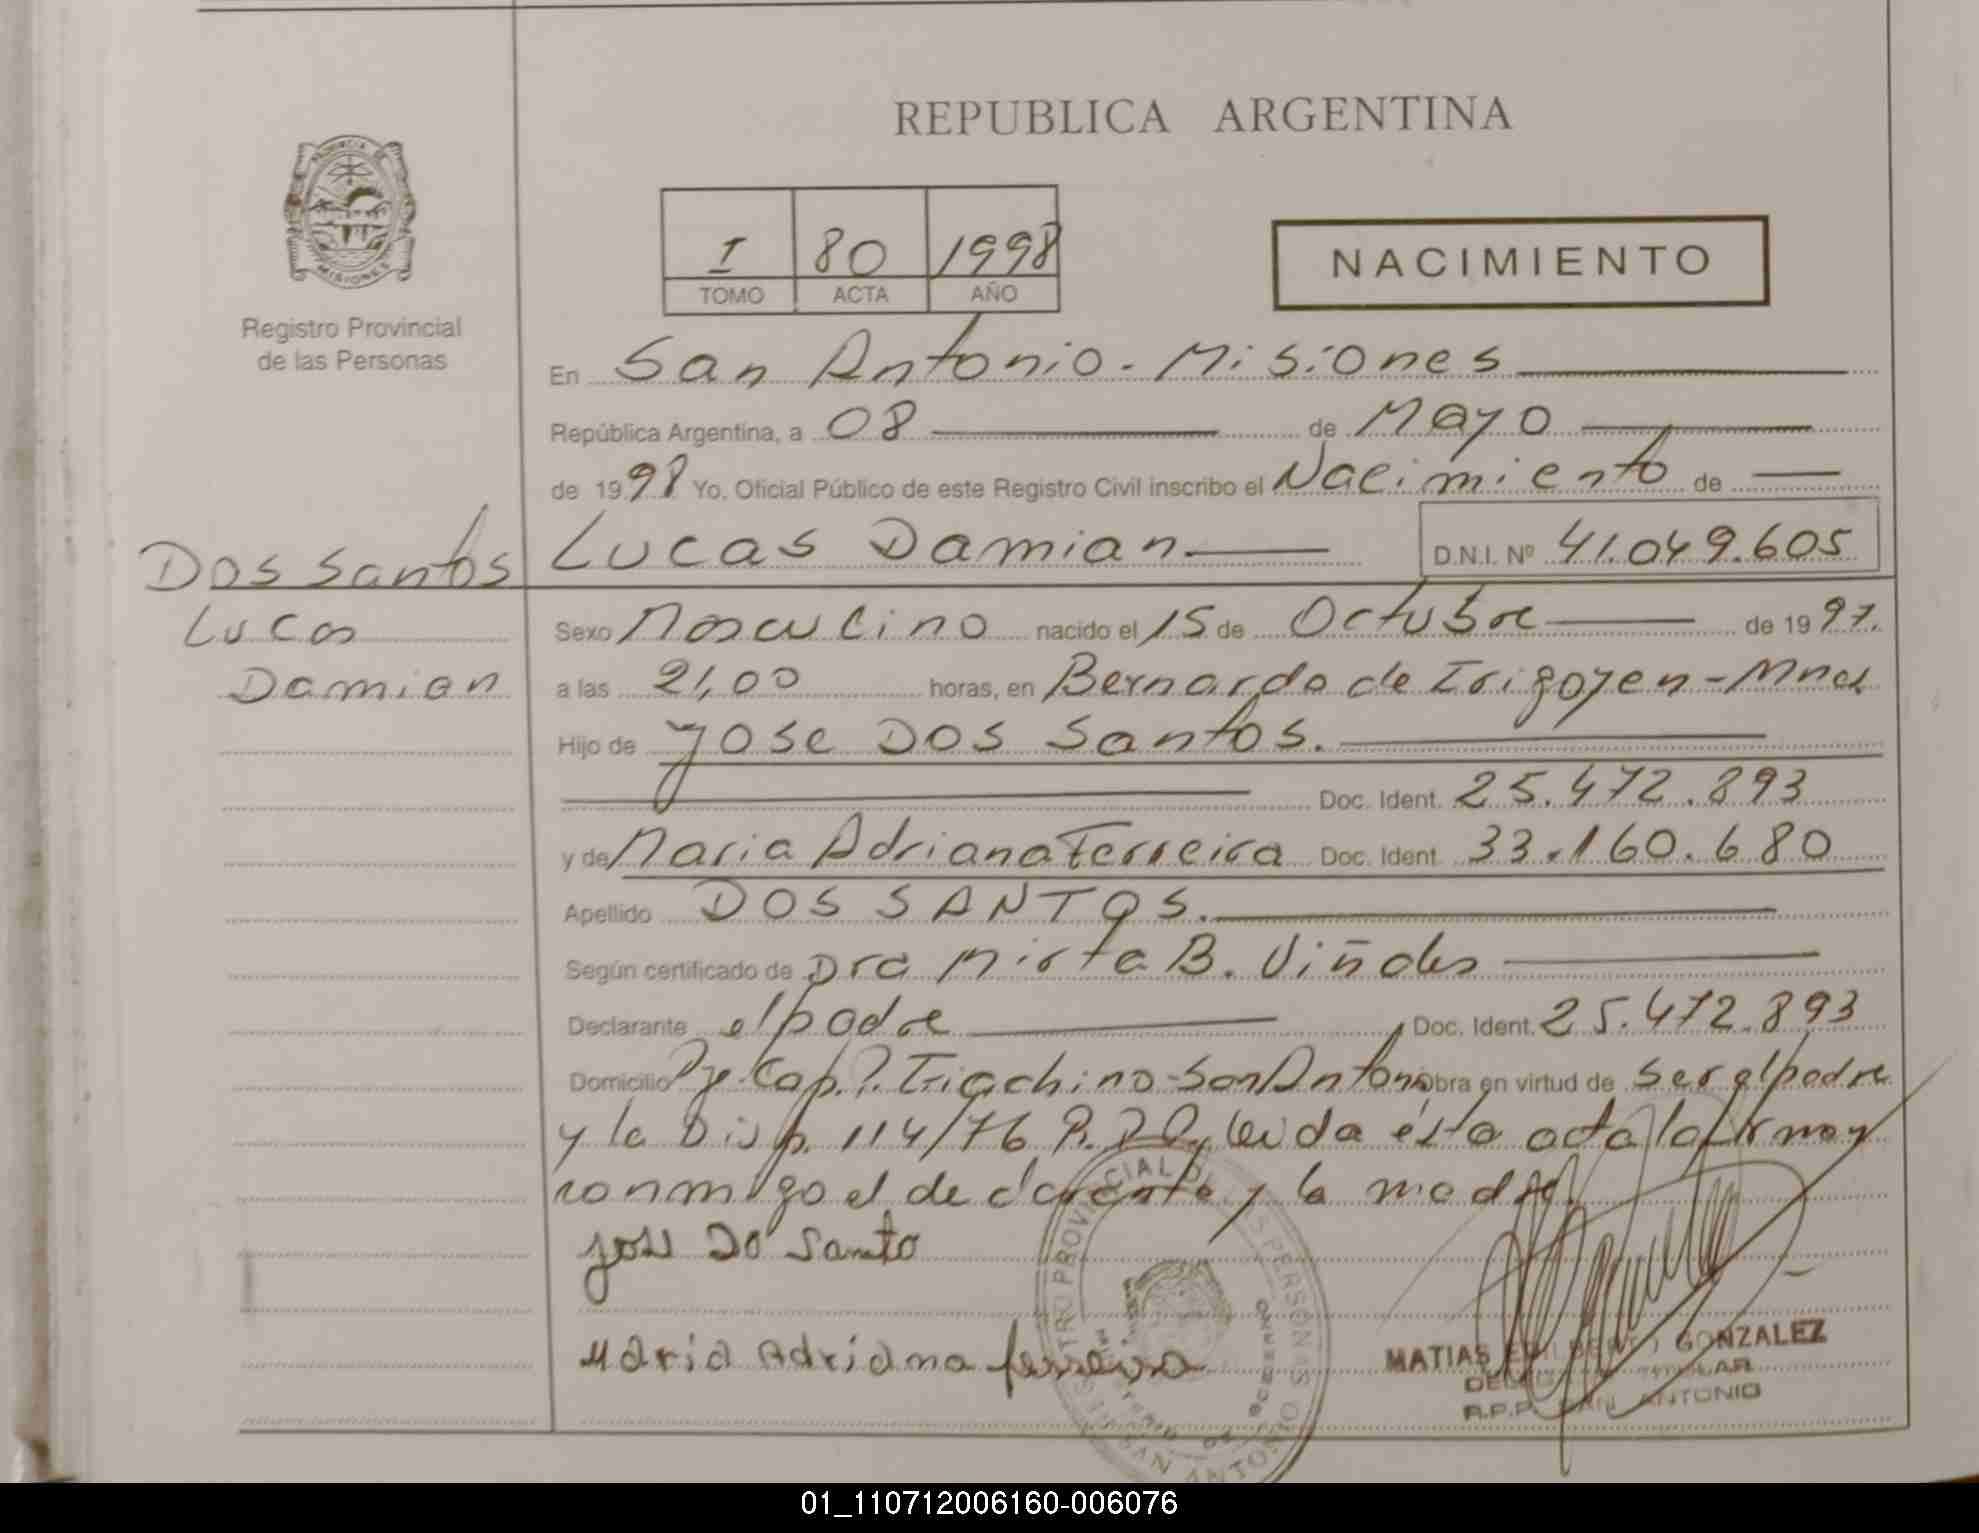 REPUBLICA ARGENTINA
PROVINCIA DE
MISIONES
Registro Provincial
de las Personas
I 80 1998
TOMO ACTA AÑO
NACIMIENTO
En San Antonio - Misiones
República Argentina, a 08 de Mayo
de 1998 Yo, Oficial Público de este Registro Civil inscribo el Nacimiento de
Lucas Damian D.N.I. Nº 41.049.605
Dos Santos
Lucas
Damian
Sexo Masculino nacido el 15 de Octubre de 1997.
a las 21,00 horas, en Bernardo de Irigoyen - Mnes
Hijo de Jose Dos Santos.
Doc. Ident. 25.472.893
y de Maria Adriana Ferreira Doc. Ident. 33.160.680
Apellido DOS SANTOS.
Según certificado de Dra Mirta B. Viñales
Declarante el padre Doc. Ident. 25.472.893
Domicilio Cap. San Antonio Obra en virtud de ser el padre
y la Disp. 114/76 leida ésta acta la firman
conmigo el declarante y la madre.
José Do Santo
Maria Adriana ferreira
MATIAS GONZALEZ
TITULAR
R.P.P. SAN ANTONIO
01_110712006160-006076